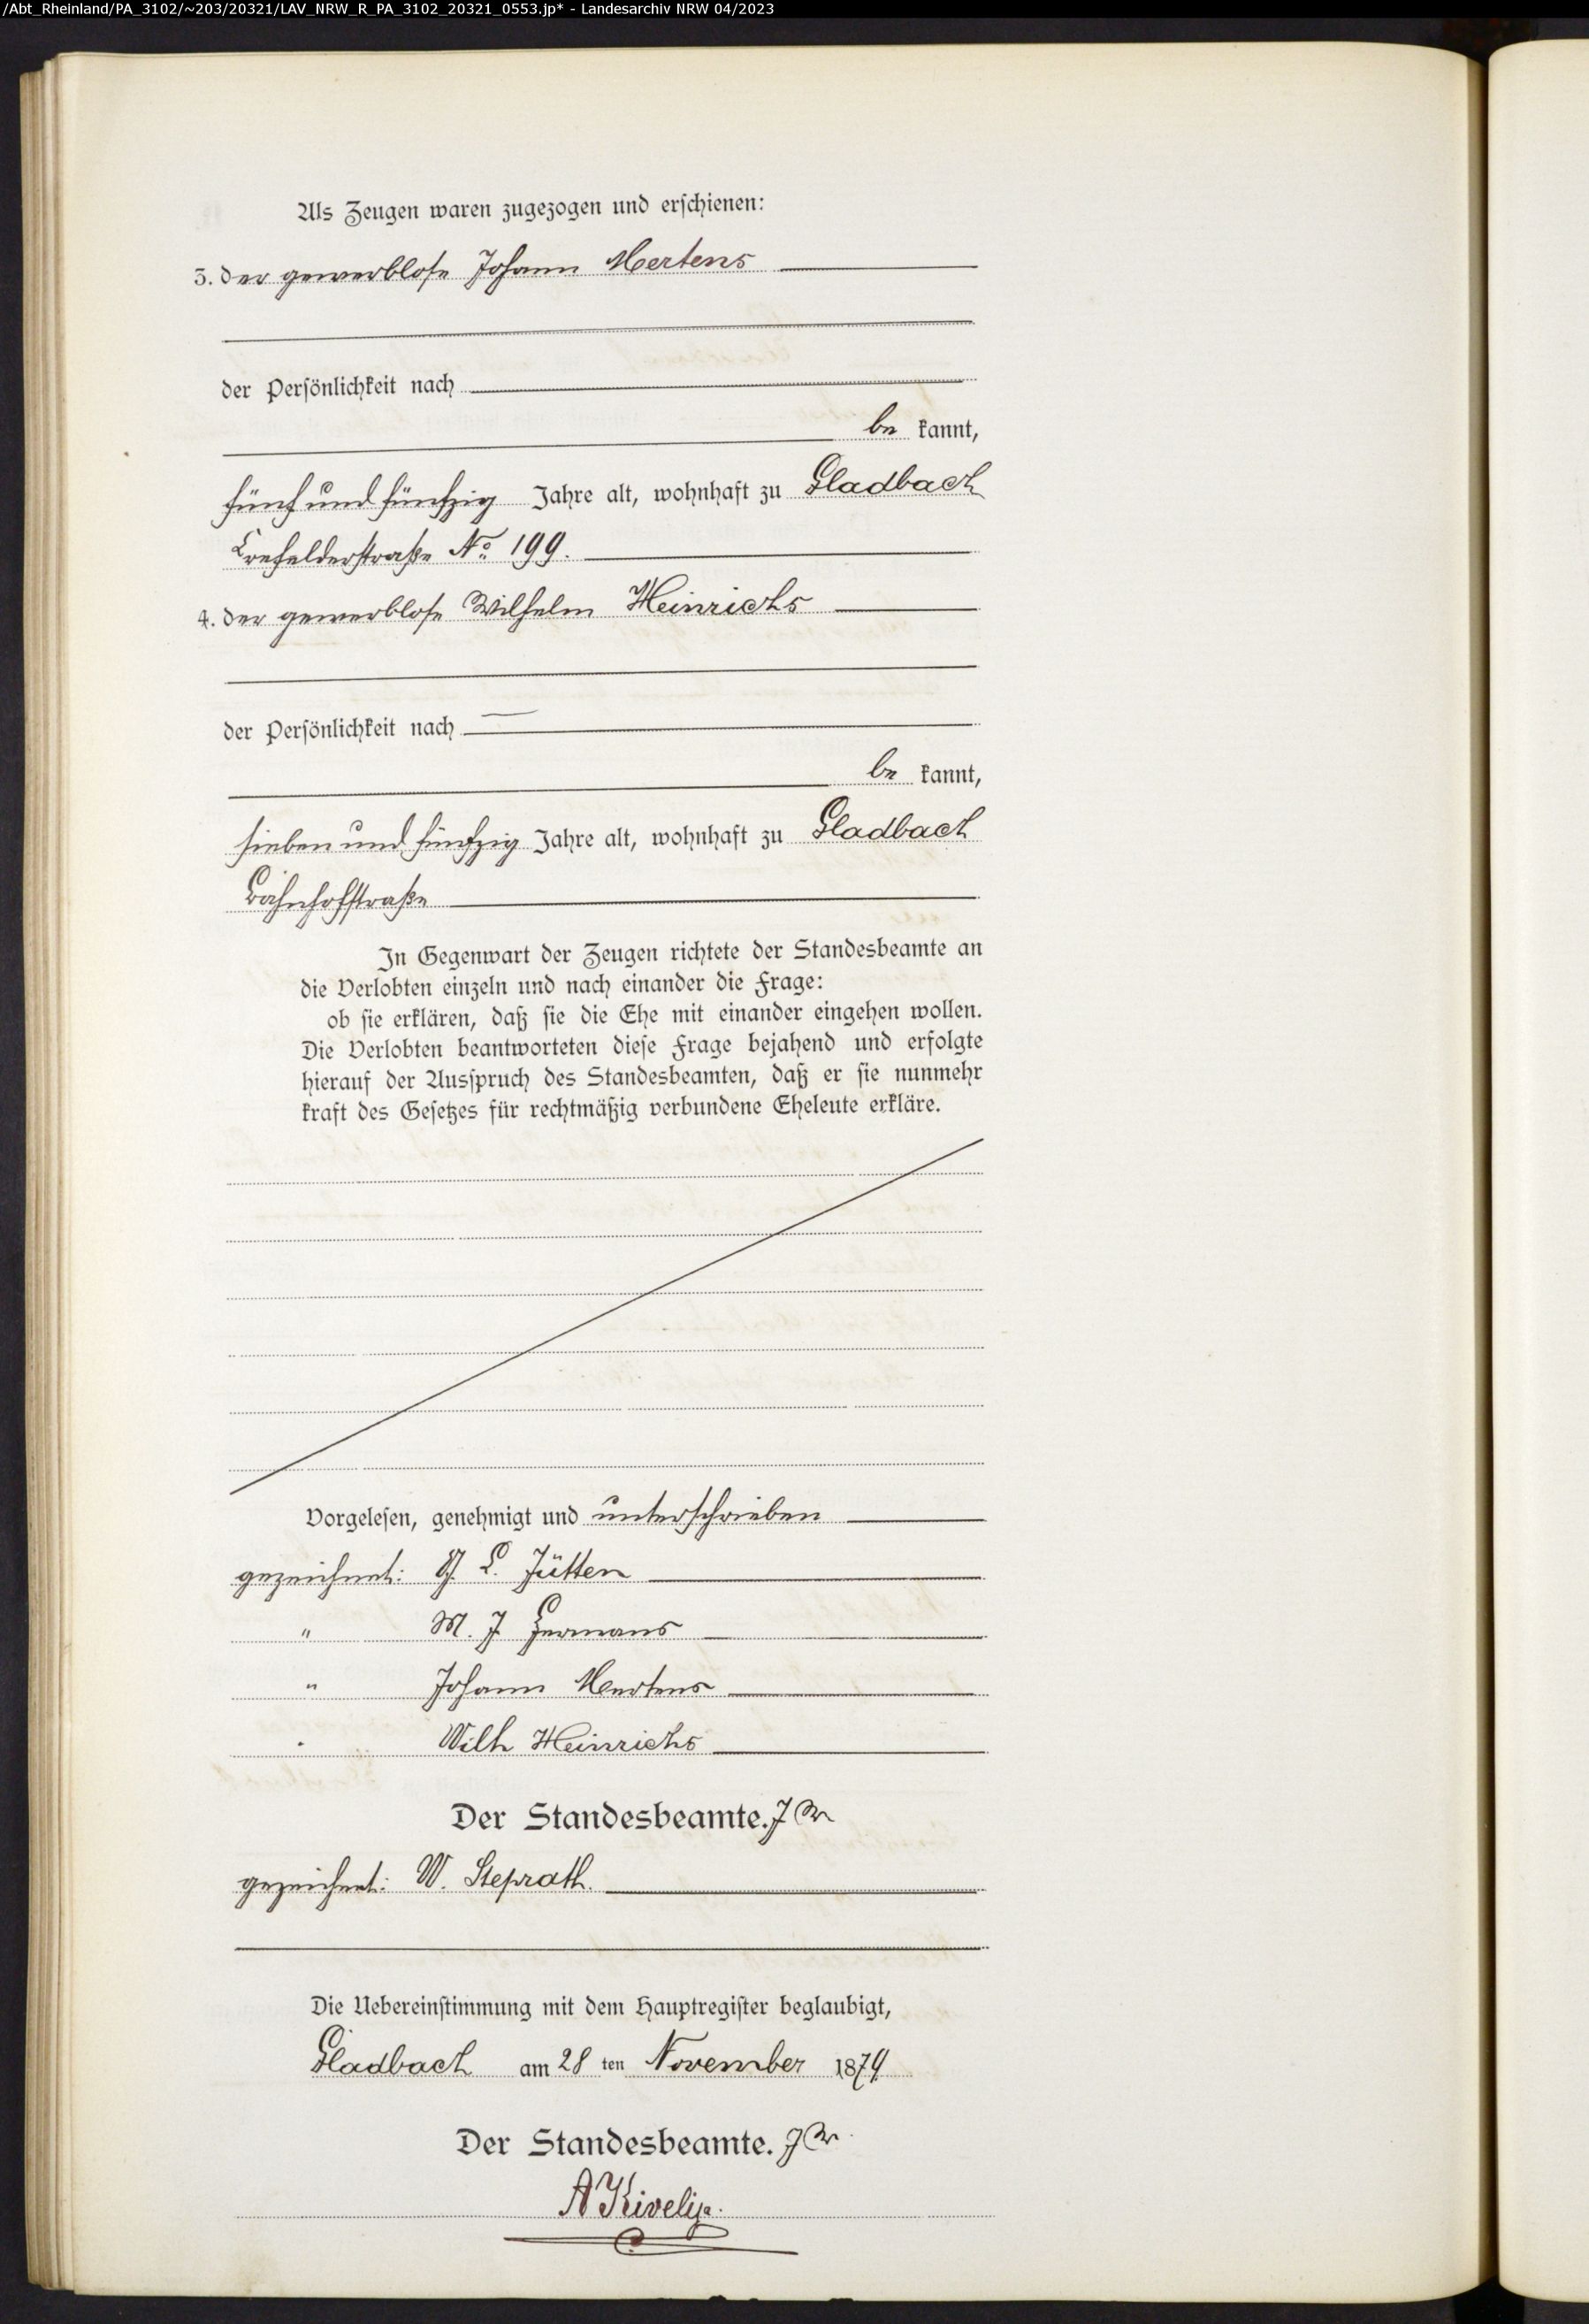 /Abt_Rheinland/PA_3102/~203/20321/LAV_NRW_R_PA_3102_20321_0553.jp* - Landesarchiv NRW 04/2023
Als Zeugen waren zugezogen und erschienen:
3. der gewerblose Johann Mertens
der Persönlichkeit nach
be kannt,
fünf und fünfzig Jahre alt, wohnhaft zu Gladbach
Crefelderstraße No. 199.
4. der gewerblose Wilhelm Heinrichs
der Persönlichkeit nach
be kannt,
sieben und fünfzig Jahre alt, wohnhaft zu Gladbach
Bahnhofstraße
In Gegenwart der Zeugen richtete der Standesbeamte an
die Verlobten einzeln und nach einander die Frage:
ob sie erklären, daß sie die Ehe mit einander eingehen wollen.
Die Verlobten beantworteten diese Frage bejahend und erfolgte
hierauf der Ausspruch des Standesbeamten, daß er sie nunmehr
kraft des Gesetzes für rechtmäßig verbundene Eheleute erkläre.
Vorgelesen, genehmigt und unterschrieben
gezeichnet: L. Jütten
" M. J. Hermans
" Johann Mertens
" Wilh Heinrichs
Der Standesbeamte.
gezeichnet: W. Steprath.
Die Uebereinstimmung mit dem Hauptregister beglaubigt,
Gladbach am 28 ten November 1879
Der Standesbeamte.